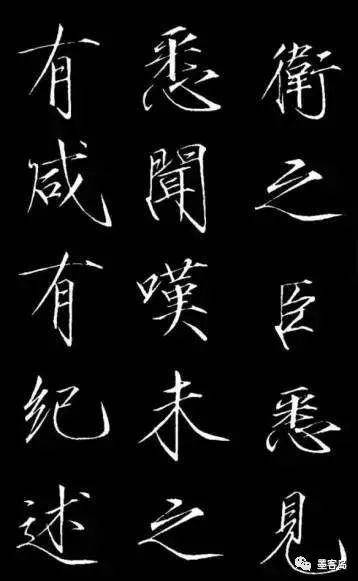 衛之臣悉見
悉聞嘆未之
有咸有紀述
墨客岛